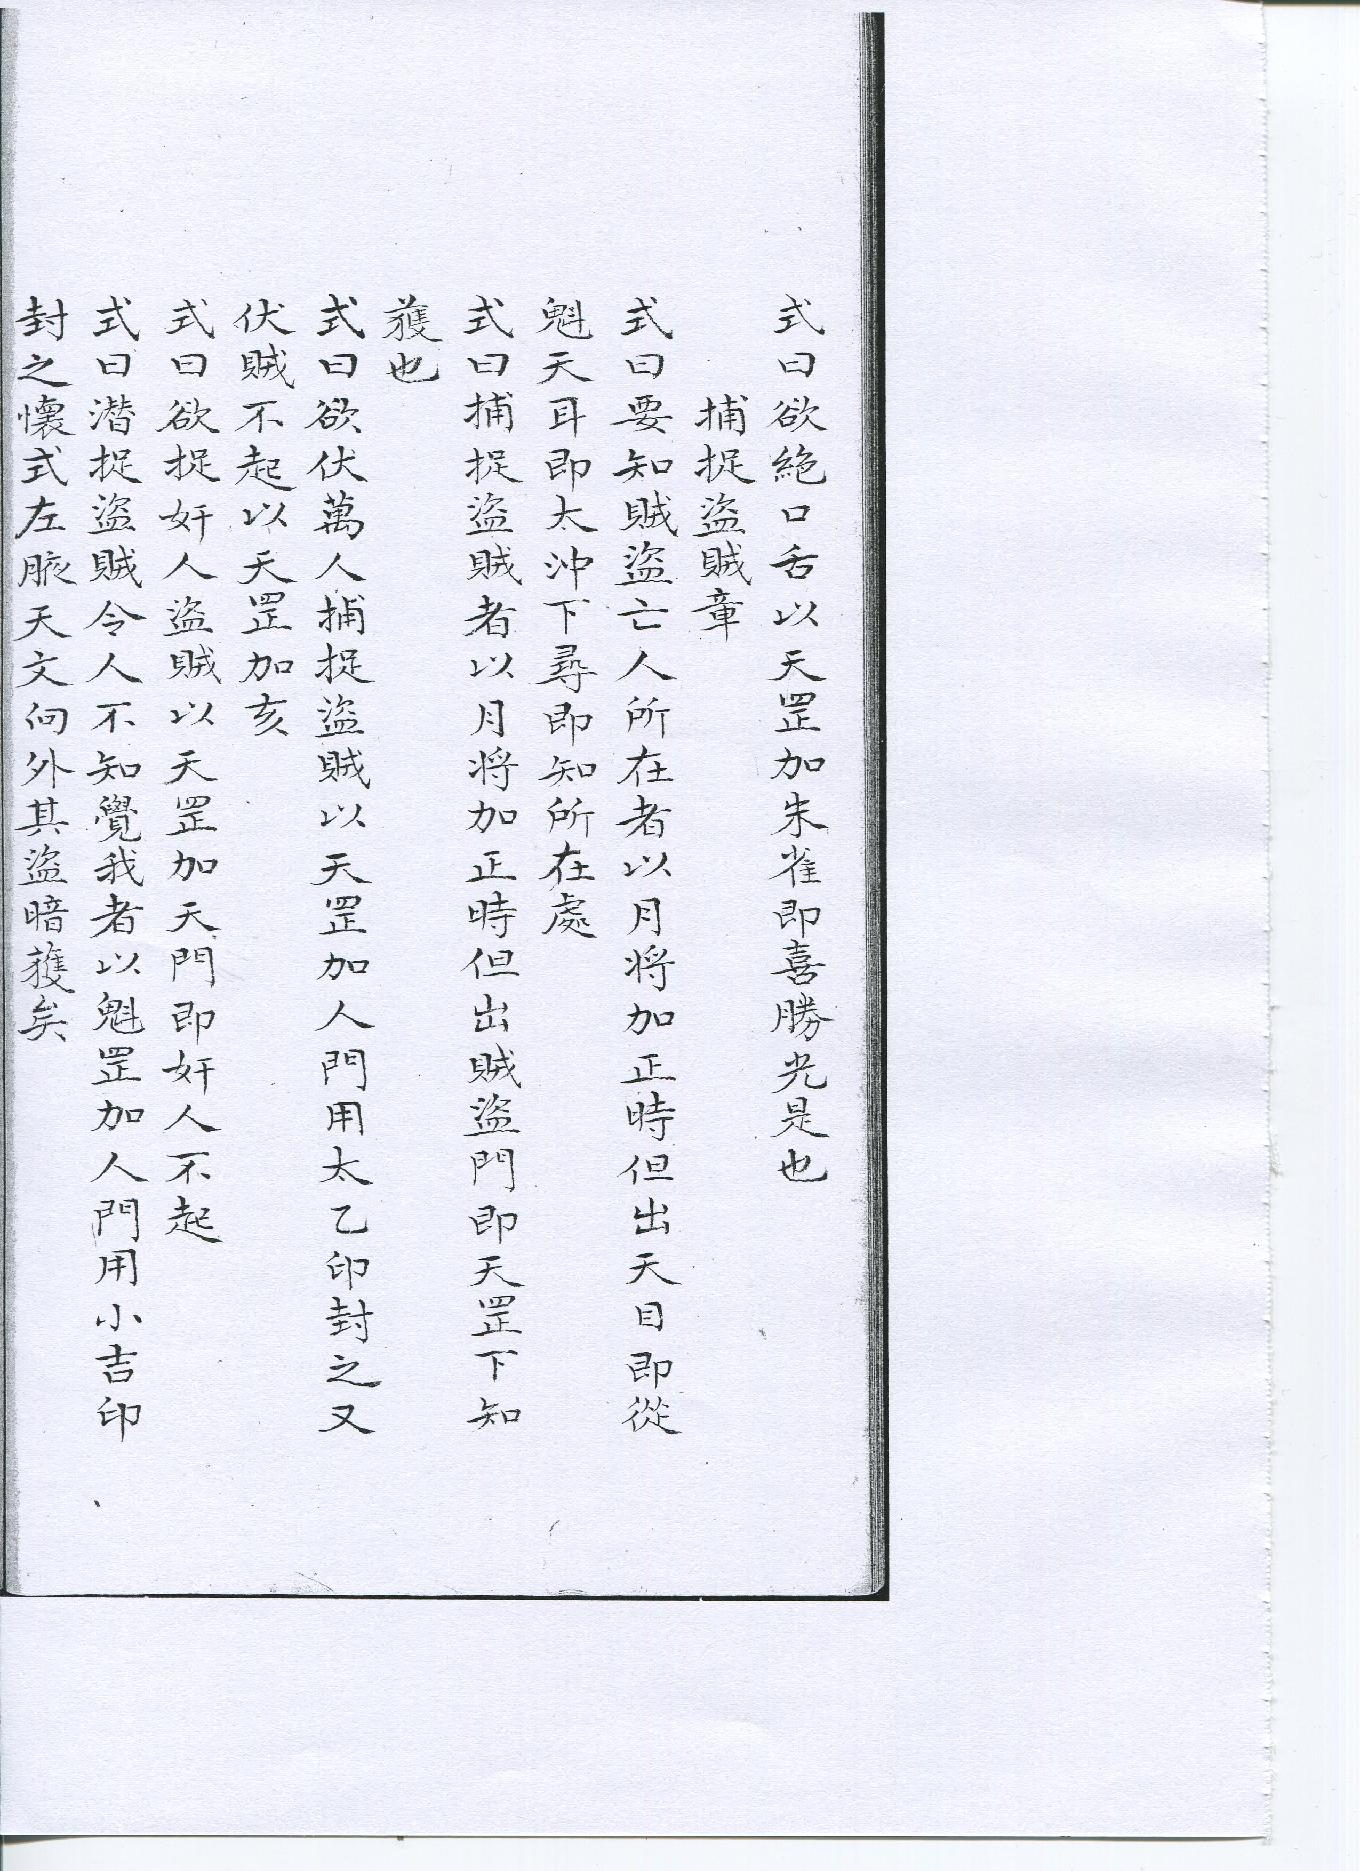 式曰欲絶口舌以天罡加朱雀即喜勝光是也
捕捉盜賊章
式曰要知賊盜亡人所在者以月将加正時但出天目即從
魁天耳即太沖下尋即知所在處
式曰捕捉盜賊者以月将加正時但出賊盜門即天罡下知
獲也
式曰欲伏萬人捕捉盜賊以天罡加人門用太乙印封之又
伏賊不起以天罡加亥
式曰欲捉奸人盜賊以天罡加天門即奸人不起
式曰潜捉盜賊令人不知覺我者以魁罡加人門用小吉印
封之懷式左腋天文向外其盜暗獲矣